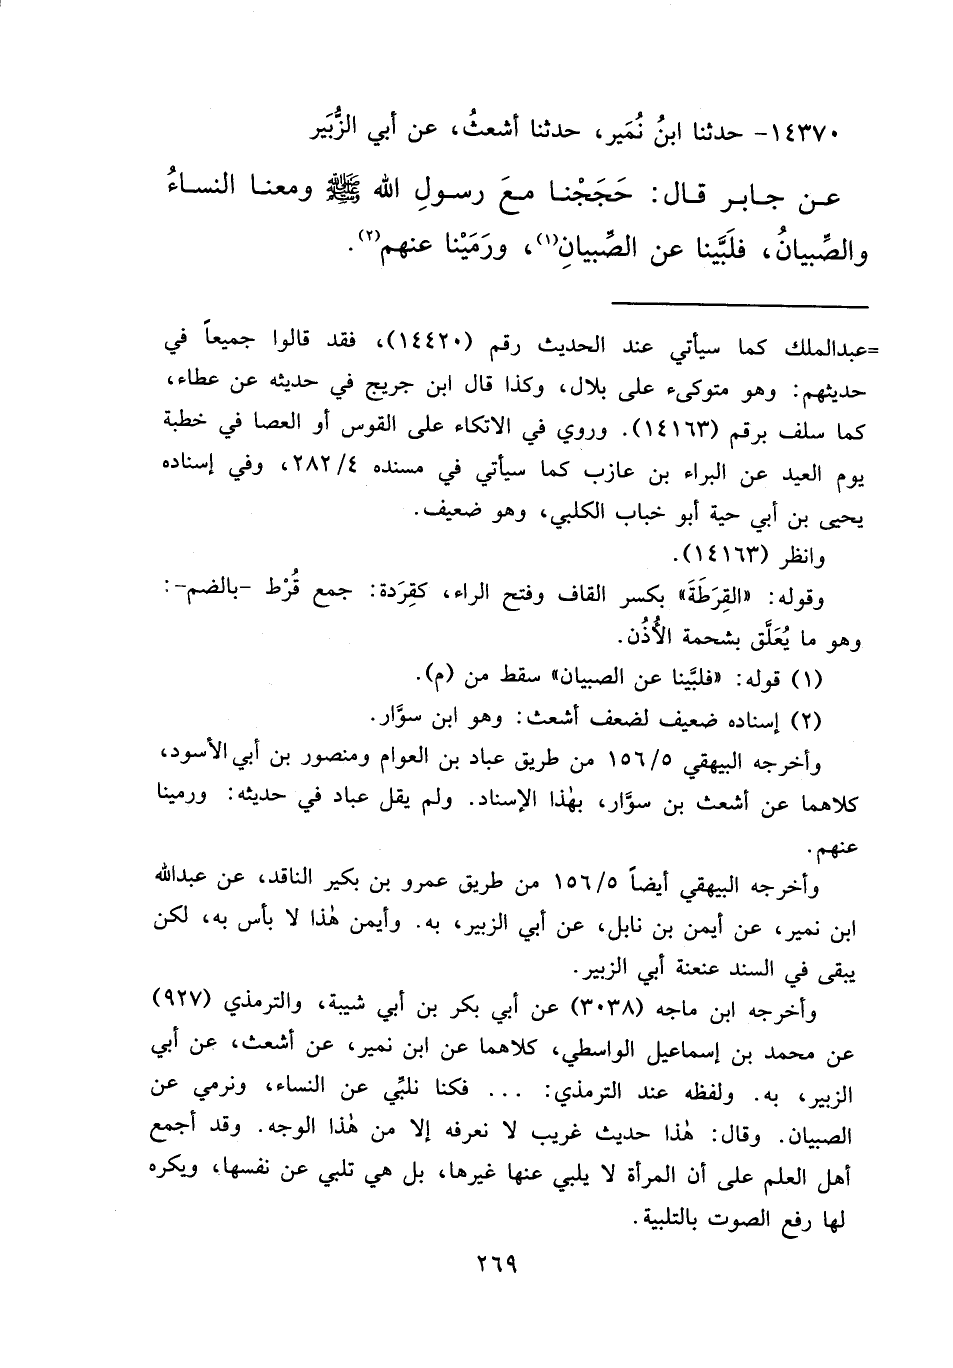 ١٤٣٧٠- حدثنا ابنُ نُمَير، حدثنا أشعثُ، عن أبي الزُّبَير
عن جابر قال: حَجَجْنا معَ رسولِ الله ﷺ ومعنا النساءُ
والصِّبيانُ، فلَبَّينا عن الصِّبيانِ(١)، ورَمَيْنا عنهم(٢).
=عبدالملك كما سيأتي عند الحديث رقم (١٤٤٢٠)، فقد قالوا جميعاً في
حديثهم: وهو متوكىء على بلال، وكذا قال ابن جريج في حديثه عن عطاء،
كما سلف برقم (١٤١٦٣). وروي في الاتكاء على القوس أو العصا في خطبة
يوم العيد عن البراء بن عازب كما سيأتي في مسنده ٢٨٢/٤، وفي إسناده
يحيى بن أبي حية أبو خباب الكلبي، وهو ضعيف.
وانظر (١٤١٦٣).
وقوله: «القِرَطَة» بكسر القاف وفتح الراء، كقِرَدة: جمع قُرْط -بالضم-:
وهو ما يُعَلَّق بشحمة الأُذُن.
(١) قوله: «فلبَّينا عن الصبيان» سقط من (م).
(٢) إسناده ضعيف لضعف أشعث: وهو ابن سوَّار.
وأخرجه البيهقي ١٥٦/٥ من طريق عباد بن العوام ومنصور بن أبي الأسود،
كلاهما عن أشعث بن سوَّار، بهٰذا الإسناد. ولم يقل عباد في حديثه: ورمينا
عنهم.
وأخرجه البيهقي أيضاً ١٥٦/٥ من طريق عمرو بن بكير الناقد، عن عبدالله
ابن نمير، عن أيمن بن نابل، عن أبي الزبير، به. وأيمن هٰذا لا بأس به، لكن
يبقى في السند عنعنة أبي الزبير.
وأخرجه ابن ماجه (٣٠٣٨) عن أبي بكر بن أبي شيبة، والترمذي (٩٢٧)
عن محمد بن إسماعيل الواسطي، كلاهما عن ابن نمير، عن أشعث، عن أبي
الزبير، به. ولفظه عند الترمذي: ... فكنا نلبِّي عن النساء، ونرمي عن
الصبيان. وقال: هٰذا حديث غريب لا نعرفه إلا من هٰذا الوجه. وقد أجمع
أهل العلم على أن المرأة لا يلبي عنها غيرها، بل هي تلبي عن نفسها، ويكره
لها رفع الصوت بالتلبية.
٢٦٩